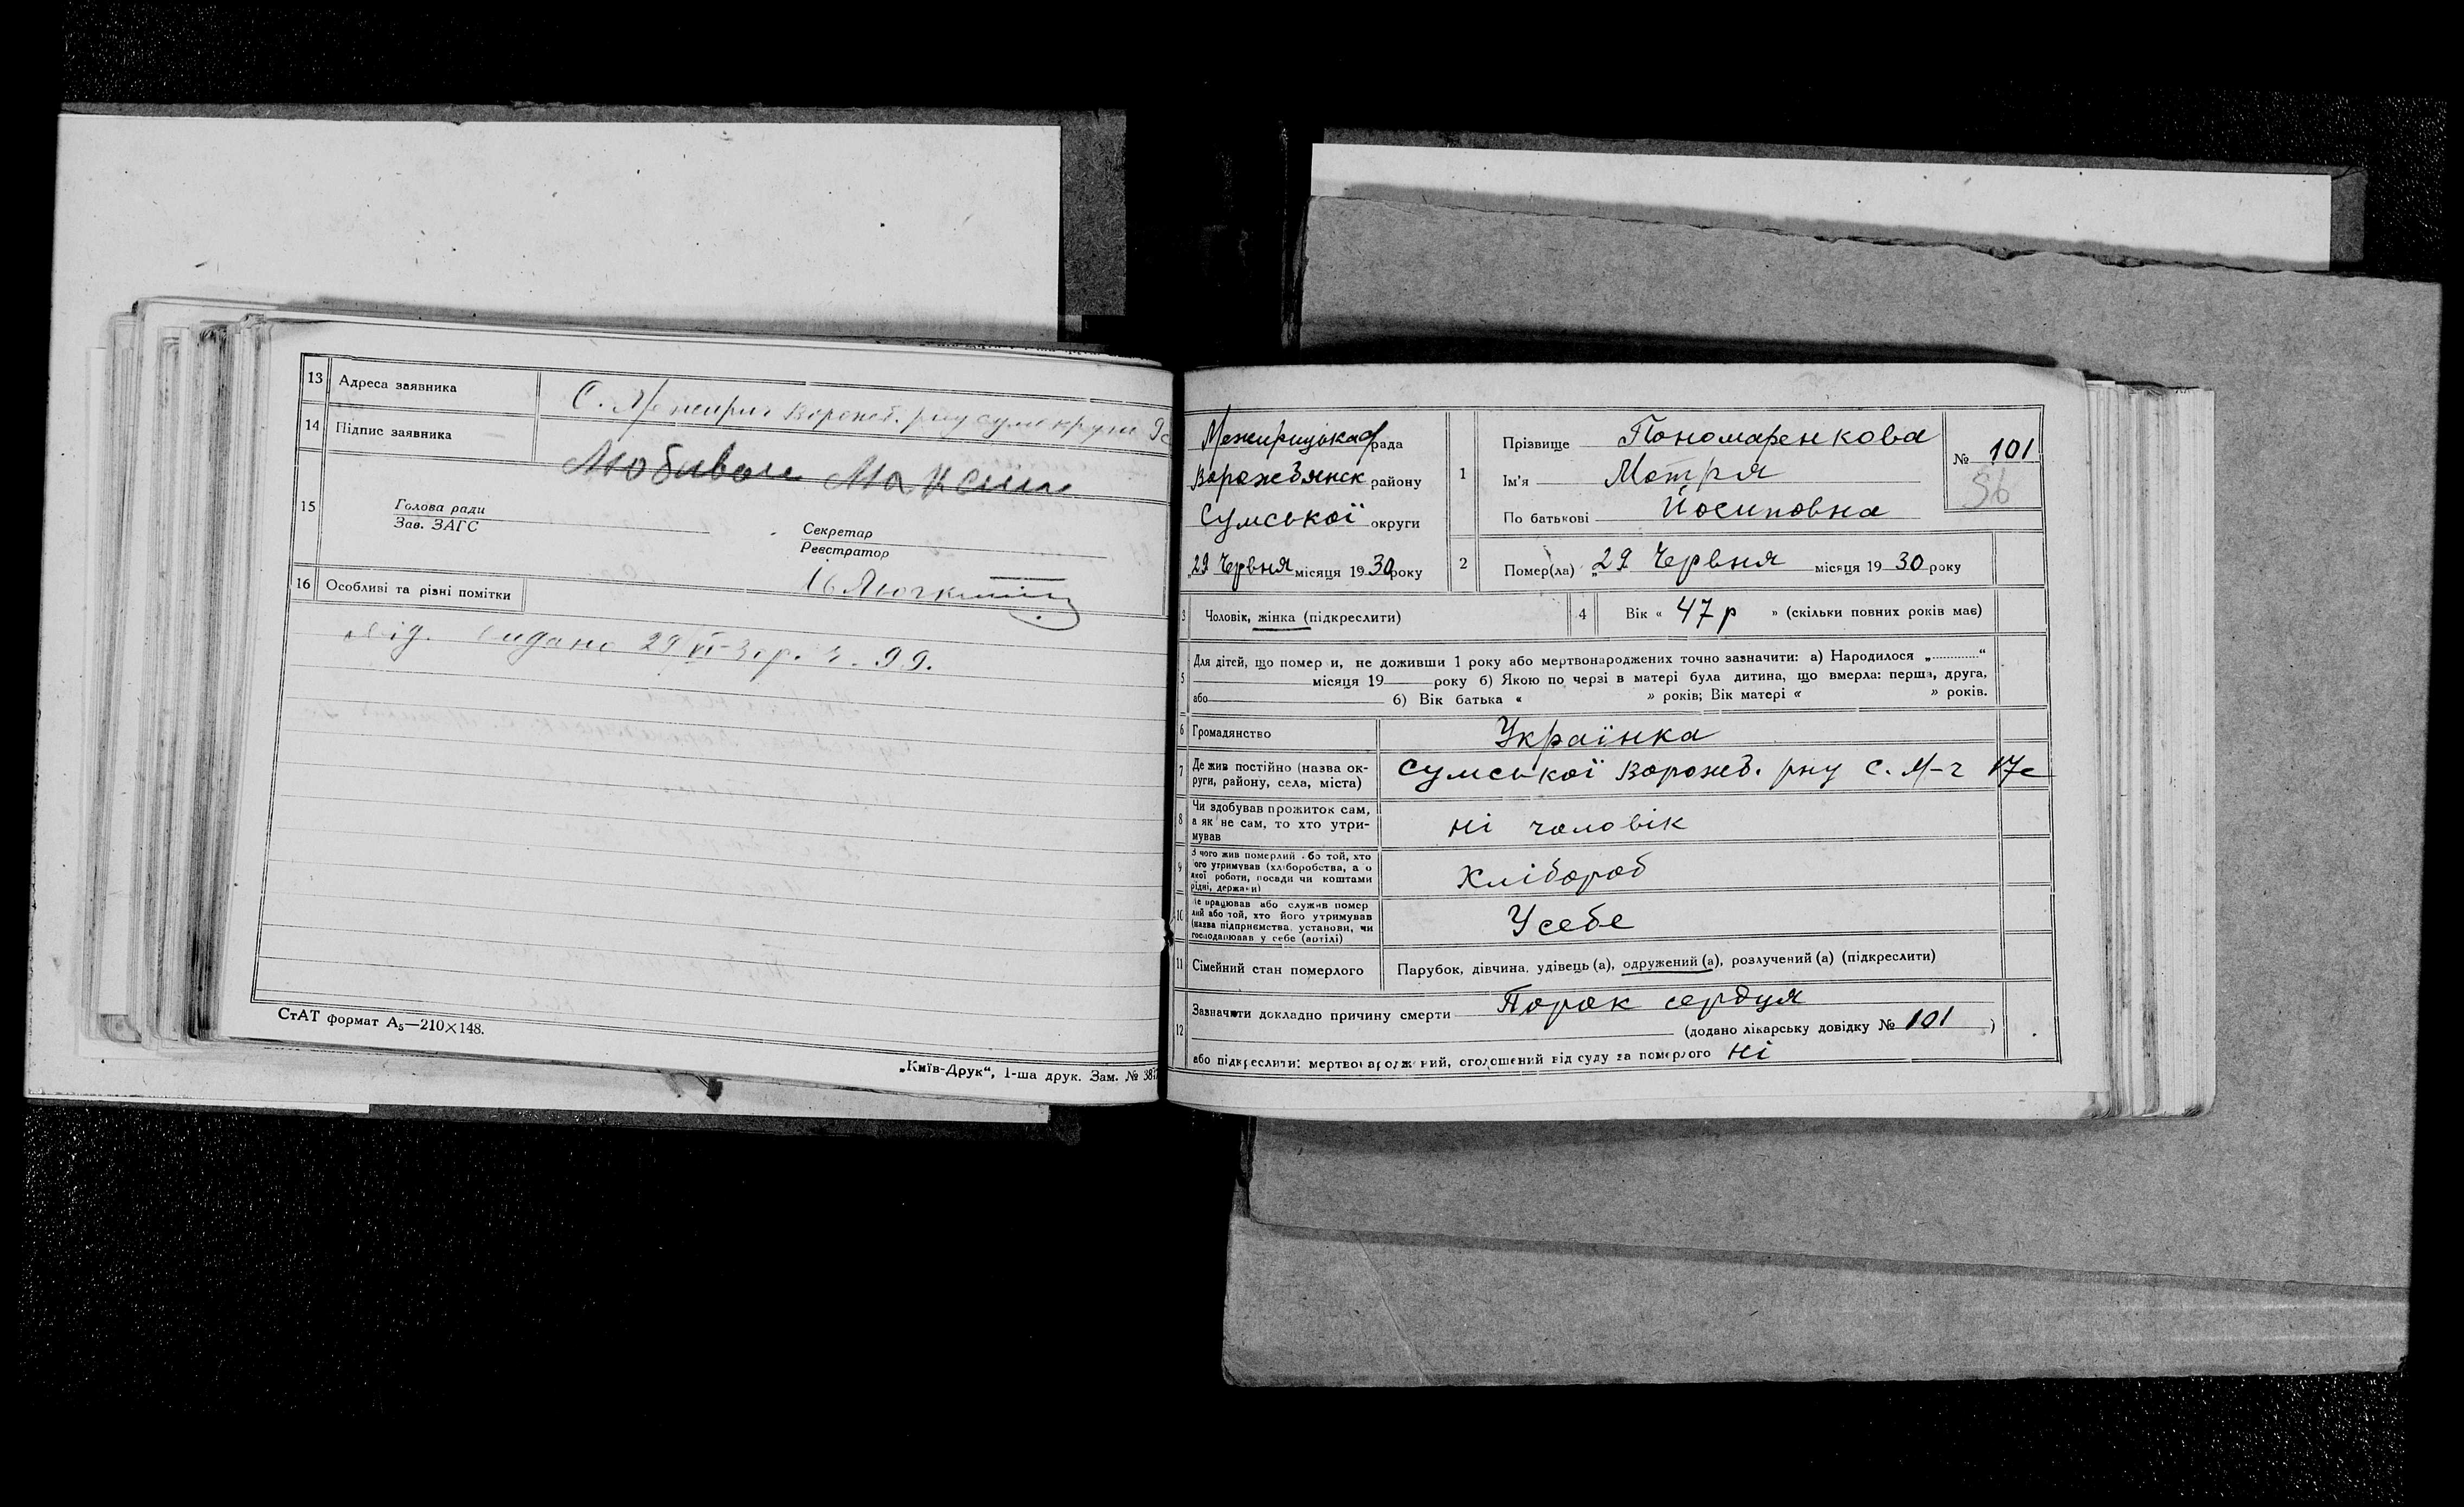 13 Адреса заявника
С. Межирич Ворожб. рну сумс округи 9с
14 Підпис заявника
15
Голова ради
Зав. ЗАГС
Секретар
Реєстратор
16 Особливі та різні помітки
видано 29 VI-30р. ч. 99.
СтАТ формат А5—210×148.
„Київ-Друк“, 1-ша друк. Зам. №
Межирицька рада
Ворожбянск району
Сумської округи
„29 Червня місяця 1930 року
1 Прізвище Пономаренкова
Ім'я Мотря
По батькові Йосиповна
№ 101
56
2 Помер(ла) „29 Червня місяця 1930 року
3 Чоловік, жінка (підкреслити)
4 Вік « 47 р » (скільки повних років має)
5 Для дітей, що померли, не доживши 1 року або мертвонароджених точно зазначити: а) Народилося „............“
місяця 19 року б) Якою по черзі в матері була дитина, що вмерла: перша, друга,
або б) Вік батька « » років; Вік матері « » років.
6 Громадянство Українка
7 Де жив постійно (назва ок-
руги, району, села, міста) Сумської Ворожб. рну с. М-ч 17с
8 Чи здобував прожиток сам,
а як не сам, то хто утри-
мував ні чоловік
9 З чого жив померлий або той, хто
його утримував (хліборобства, а о
якої роботи, посади чи коштами
рідні, держави) Хлібороб
10 Де працював або служив помер
лий або той, хто його утримував
(назва підприємства, установи, чи
господарював у себе (артілі) У себе
11 Сімейний стан померлого Парубок, дівчина, удівець (а), одружений (а), розлучений (а) (підкреслити)
12 Зазначити докладно причину смерти Порок сердця
(додано лікарську довідку № 101 )
або підкреслити: мертвонароджений, оголошений від суду за померлого ні